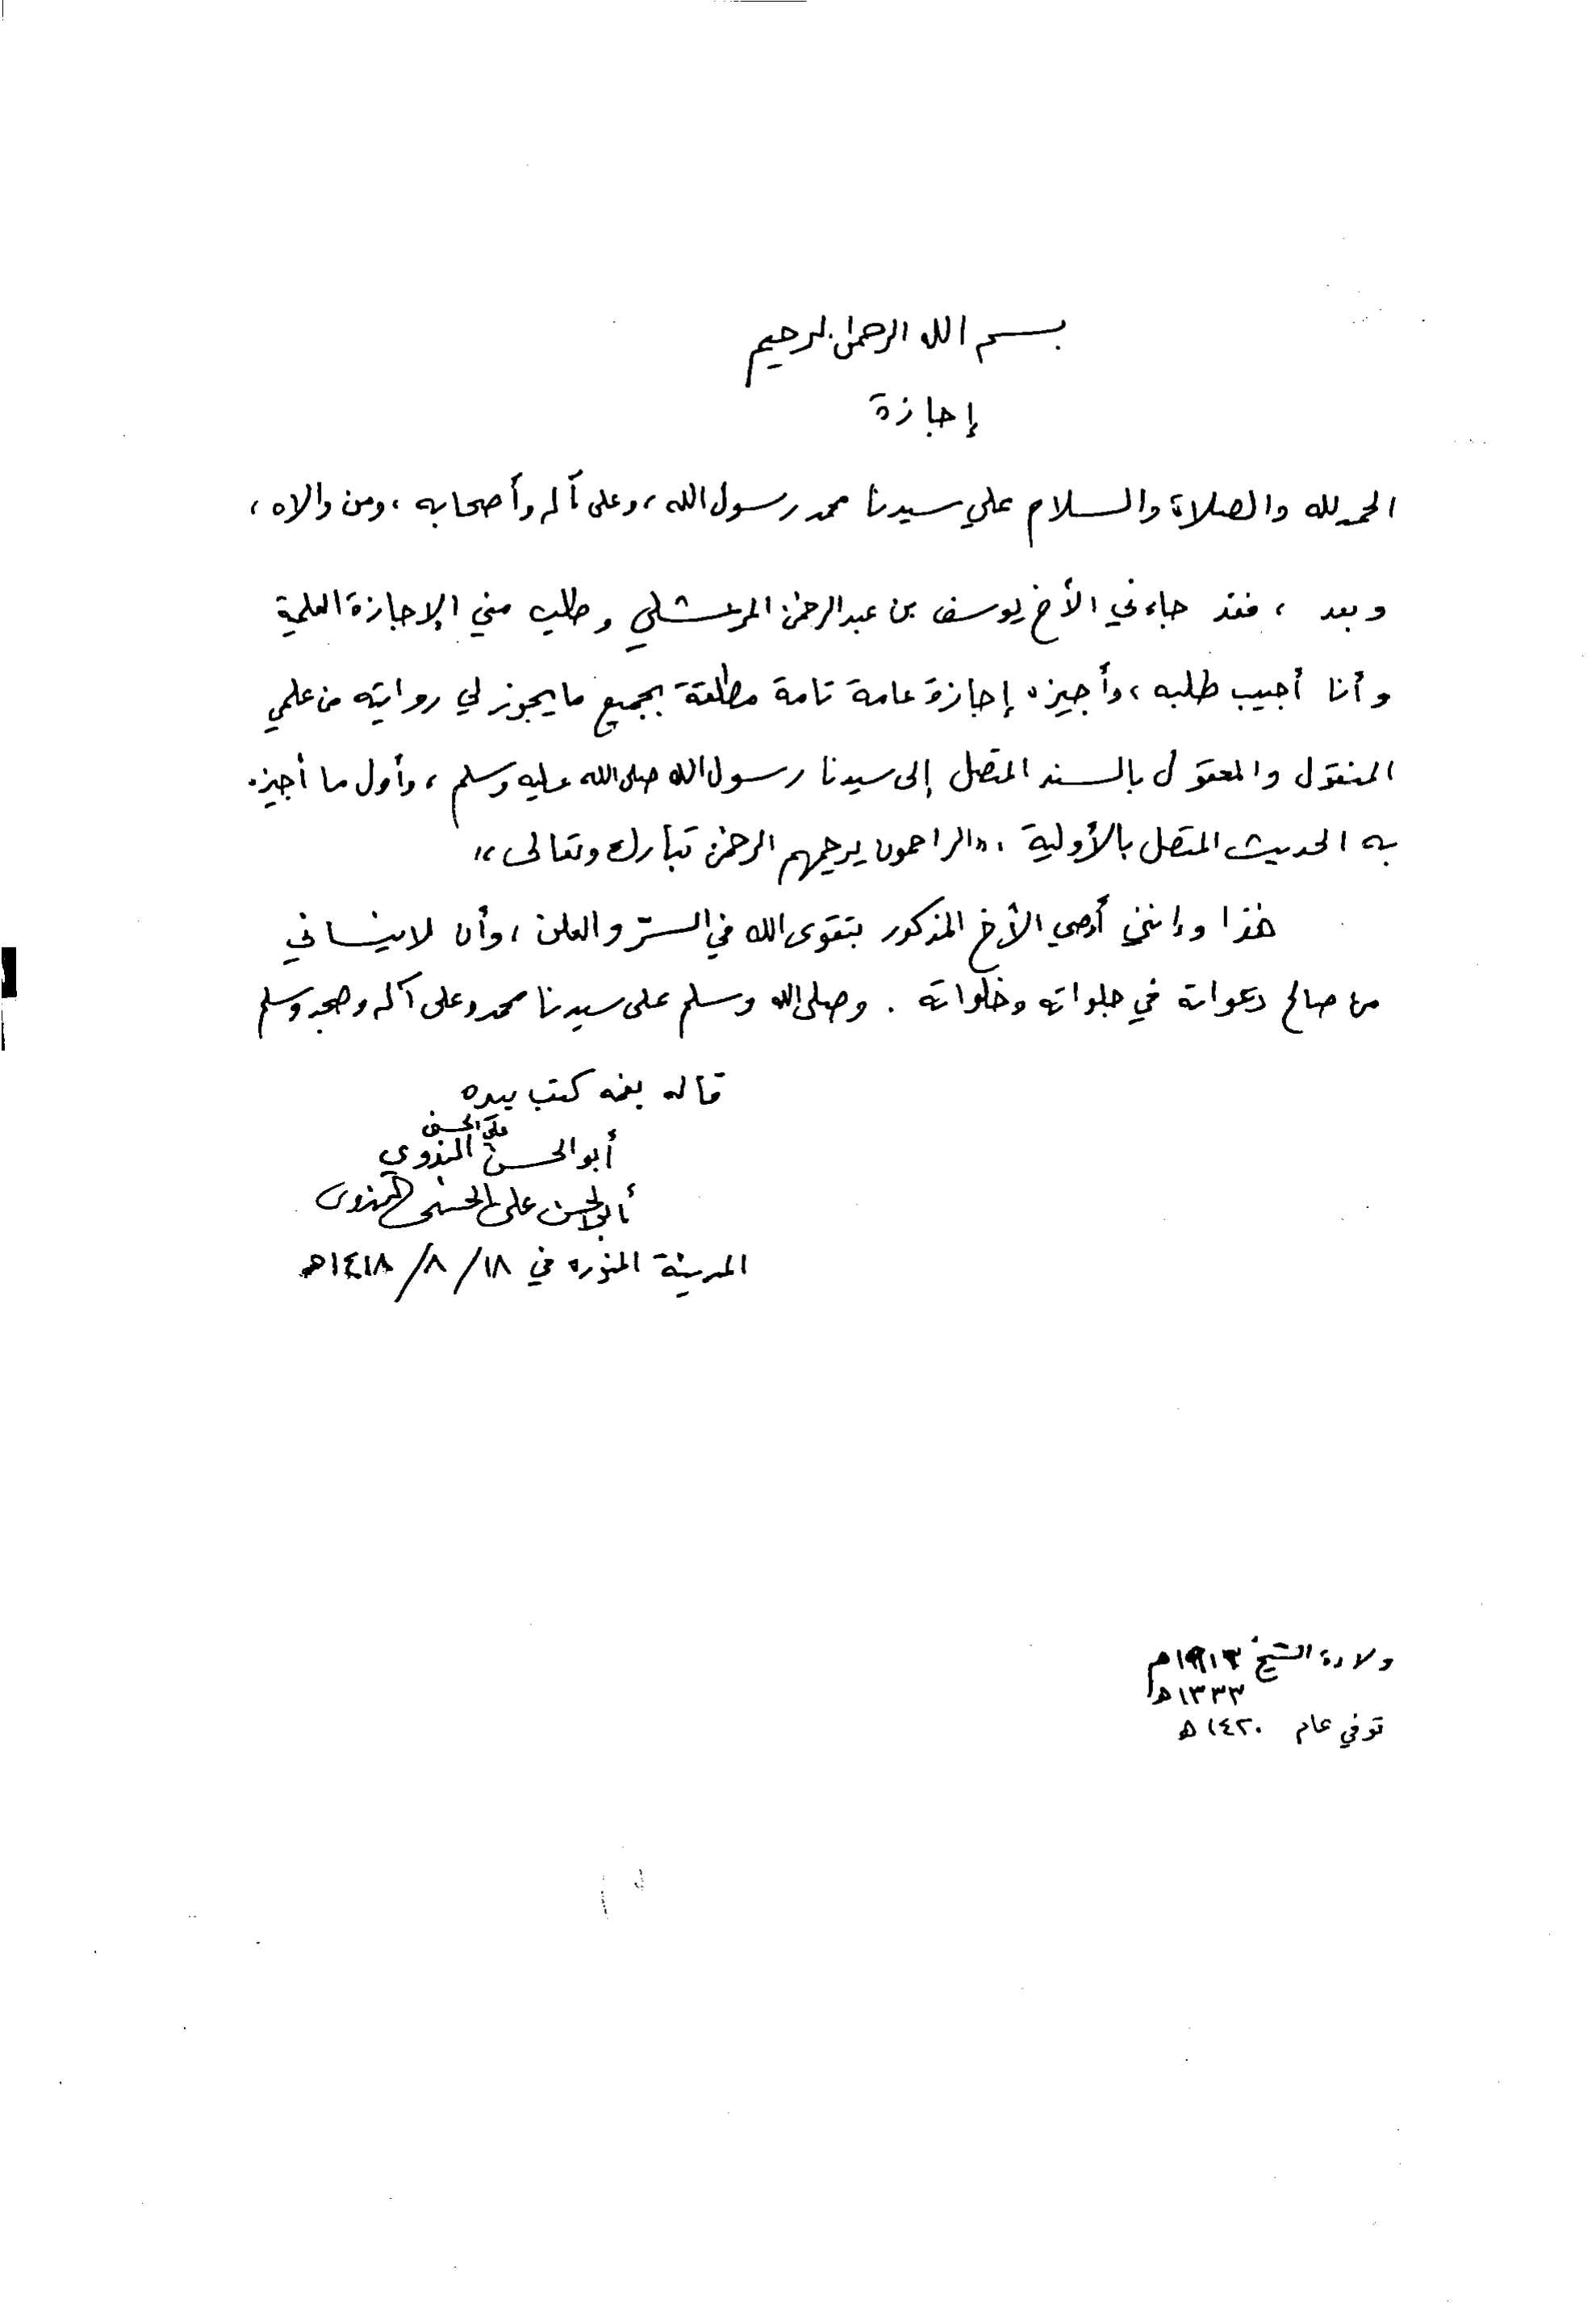 بسم الله الرحمن الرحيم
إجازة
الحمد لله والصلاة والسلام على سيدنا محمد رسول الله، وعلى آله وأصحابه، ومن والاه،
وبعد، فقد جاءني الأخ يوسف بن عبدالرحمن المرعشلي وطلب مني الإجازة العلمية
وأنا أجيب طلبه، وأجيزه إجازة عامة تامة مطلقة بجميع ما يجوز لي روايته من علمي
المنقول والمعقول بالسند المتصل إلى سيدنا رسول الله صلى الله عليه وسلم، وأول ما أجيزه
به الحديث المتصل بالأولية، «الراحمون يرحمهم الرحمن تبارك وتعالى»
هذا وإنني أوصي الأخ المذكور بتقوى الله في السرّ والعلن، وأن لا ينساني
من صالح دعواته في جلواته وخلواته. وصلى الله وسلم على سيدنا محمد وعلى آله وصحبه وسلم
قاله بفمه كتب بيده
علي الحسني
أبو الحسن الندوي
أبو الحسن علي الحسني الندوي
المدينة المنوره في ١٨/ ٨/ ١٤١٨هـ
ولادة الشيخ ١٩١٣م
١٣٣٣هـ
توفي عام ١٤٢٠هـ